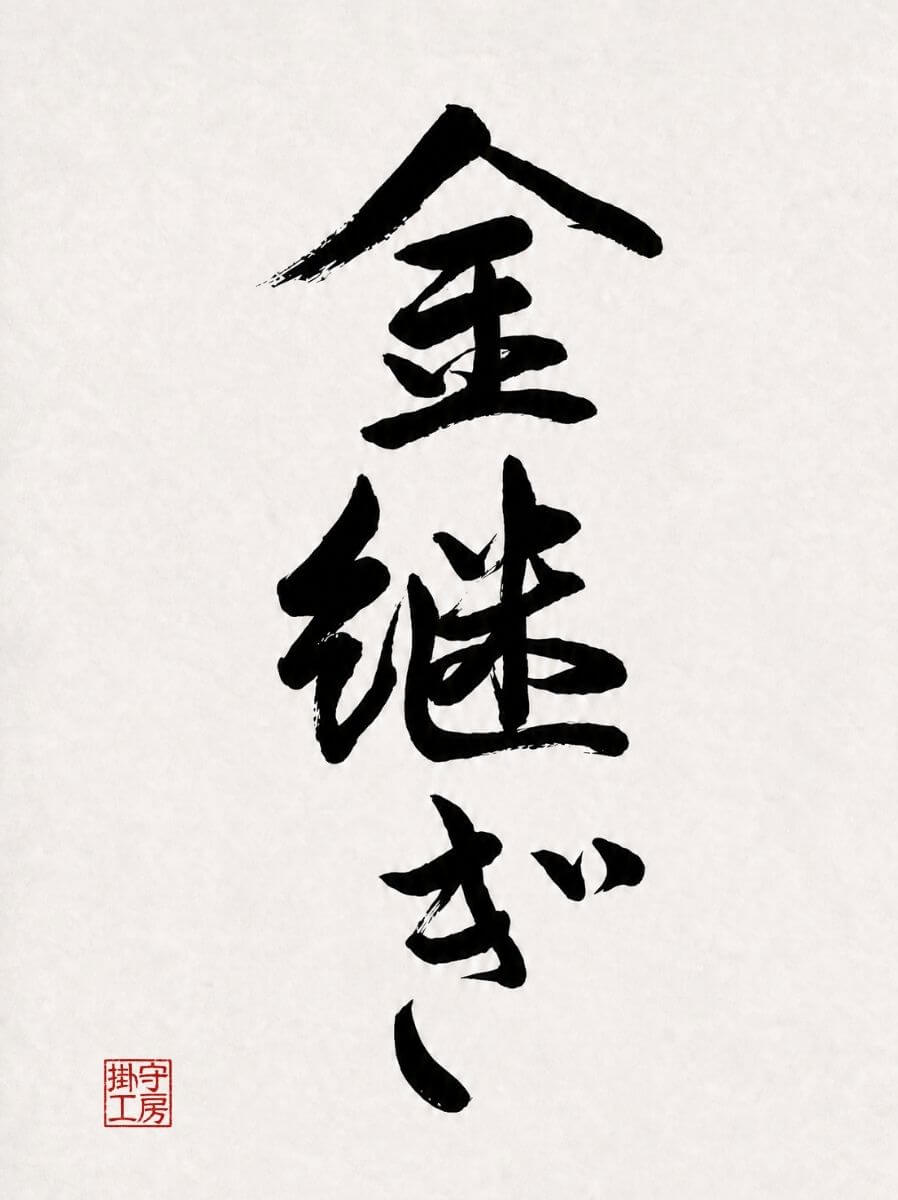 金継ぎ
掛守
工房